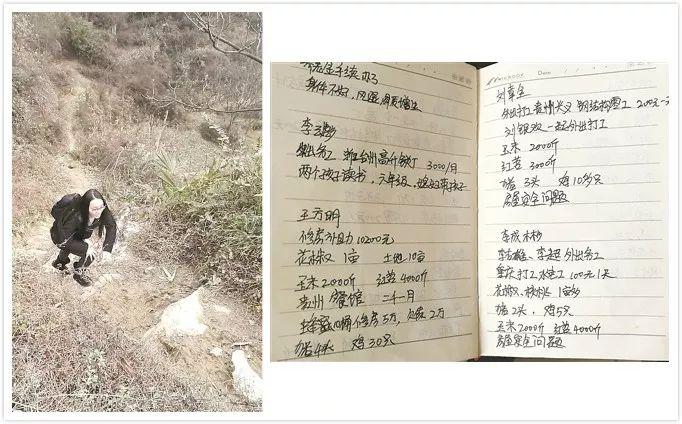 养老金手续办了
身体不好，风湿，骨质增生
出务工 浙江台州高升铁丁 3000/月
两个孩子读书，六年级，媳妇带孩子
王方明
修房补助10200元
花椒1亩 土地10亩
玉米2000斤 红苕4000斤
贵州餐馆 二千一月
修房5万，欠账2万
猪4头 鸡30只
NOTEBOOK Date
刘章全
外出打工贵州兴义 钢结构电工 200元一天
刘银双一起外出打工
玉米 2000斤
红苕 3000斤
猪3头 鸡10多只
房屋安全问题
李成彬
李志雄、李超 外出务工
重庆打工水电工 100元1天
花椒、核桃 1亩多
猪2头，鸡5只
玉米2000斤 红苕4000斤
房屋安全问题